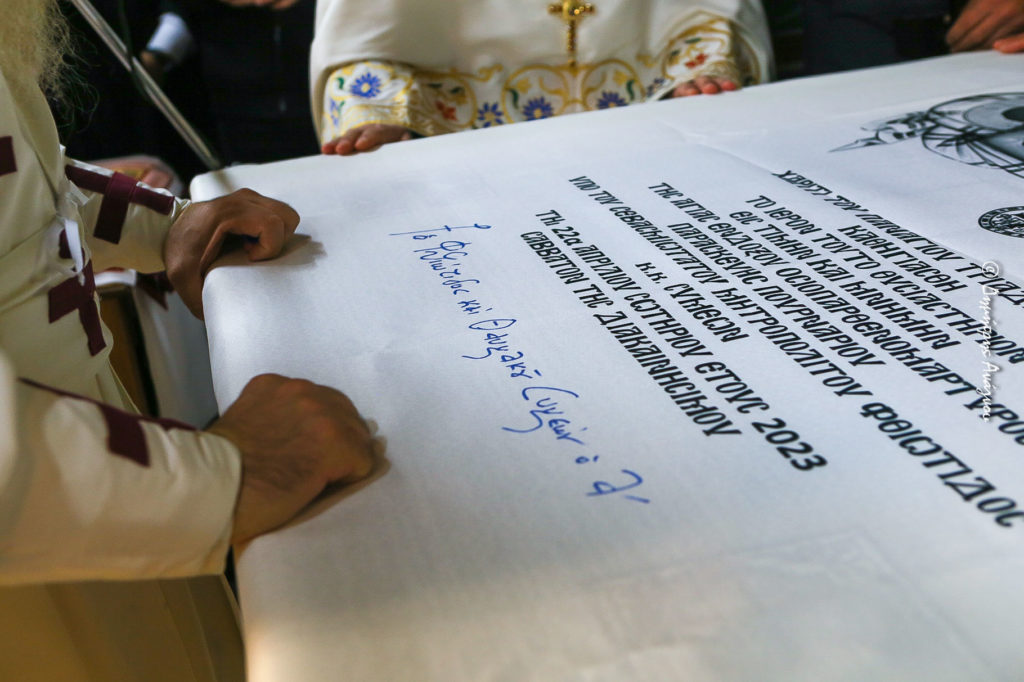 ΧΑΡΙΤΙ ΤΟΥ ΠΑΝΑΓΙΟΥ
ΚΑΘΗΓΙΑΣΘΗ
ΤΟ ΙΕΡΟΝ ΤΟΥΤΟ ΘΥΣΙΑΣΤΗΡΙΟΝ
ΕΙΣ ΤΙΜΗΝ ΚΑΙ ΜΝΗΜΗΝ
ΤΗΣ ΑΓΙΑΣ ΕΝΔΟΞΟΥ ΟΣΙΟΠΑΡΘΕΝΟΜΑΡΤΥΡΟΣ
ΠΑΡΑΣΚΕΥΗΣ ΠΟΥΡΝΑΡΙΟΥ
ΥΠΟ ΤΟΥ ΣΕΒΑΣΜΙΩΤΑΤΟΥ ΜΗΤΡΟΠΟΛΙΤΟΥ ΦΘΙΩΤΙΔΟΣ
κ.κ. ΣΥΜΕΩΝ
ΤΗ 22α ΑΠΡΙΛΙΟΥ ΣΩΤΗΡΙΟΥ ΕΤΟΥΣ 2023
ΣΑΒΒΑΤΟΝ ΤΗΣ ΔΙΑΚΑΙΝΗΣΙΜΟΥ
† ὁ Φθιώτιδος καὶ Συμεὼν ὁ Α΄